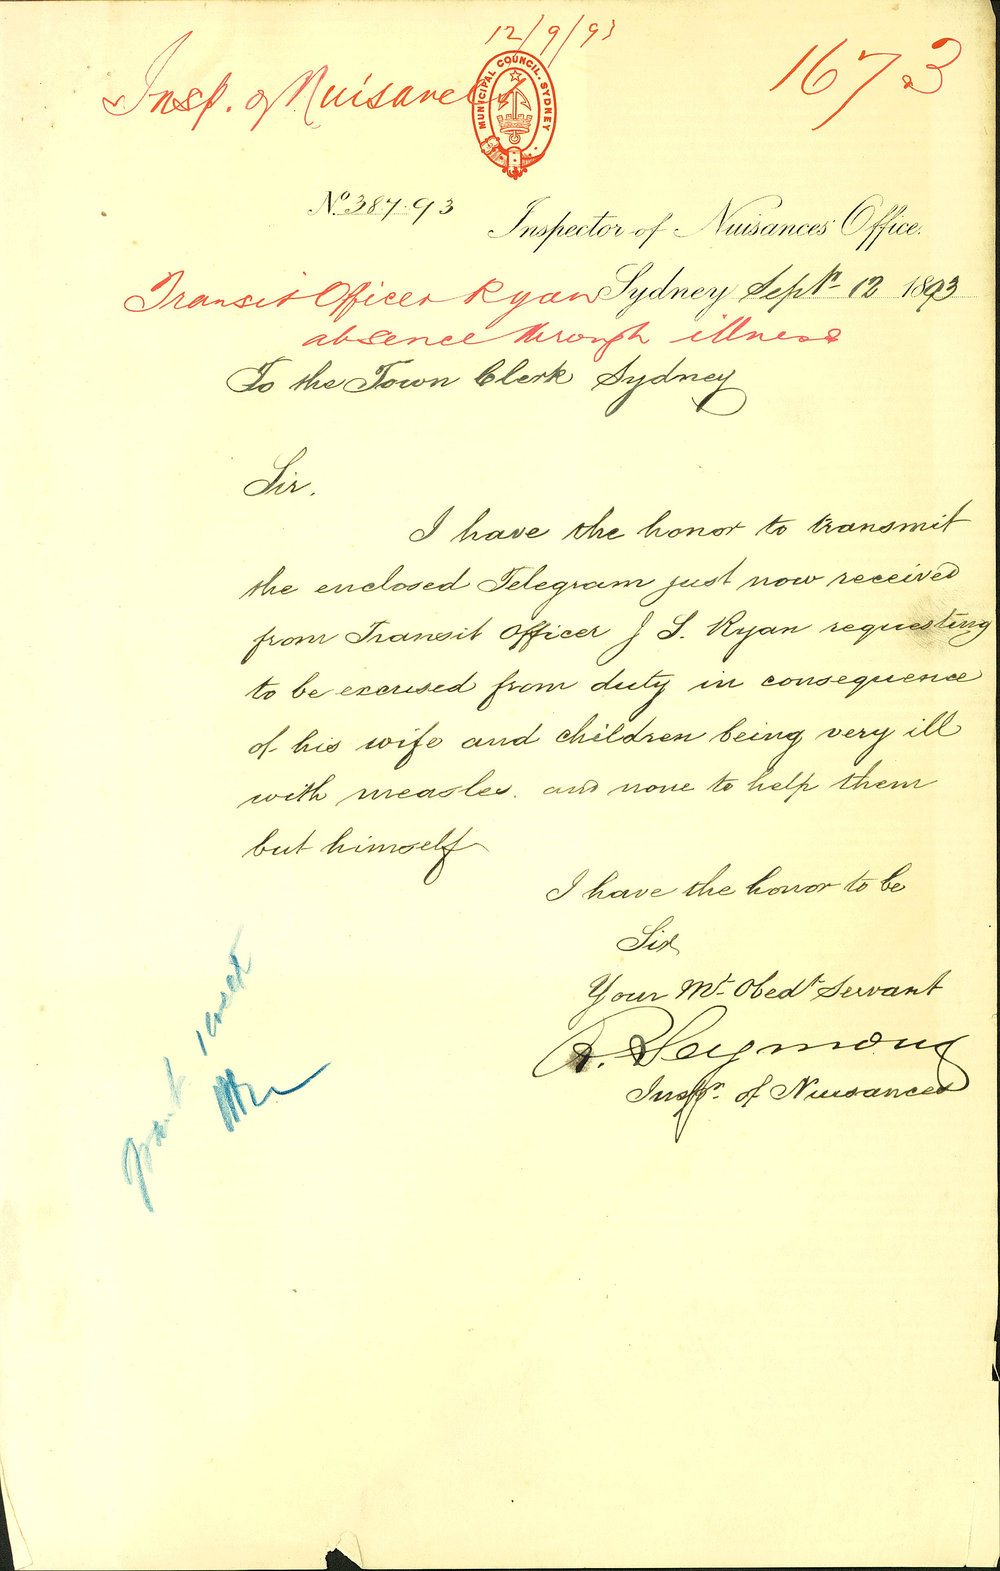 12/9/93
Insp. of Nuisances
1673
MUNICIPAL COUNCIL. SYDNEY
No. 387.93
Inspector of Nuisances' Office.
Transit Officer Ryan
Sydney Septr 12 1893
absence through illness
To the Town Clerk Sydney
Sir.
I have the honor to transmit
the enclosed Telegram just now received
from Transit Officer J S. Ryan requesting
to be excused from duty in consequence
of his wife and children being very ill
with measles. and none to help them
but himself
I have the honor to be
Sir
Your Mt Obedt Servant
R. Seymour
Inspr. of Nuisances